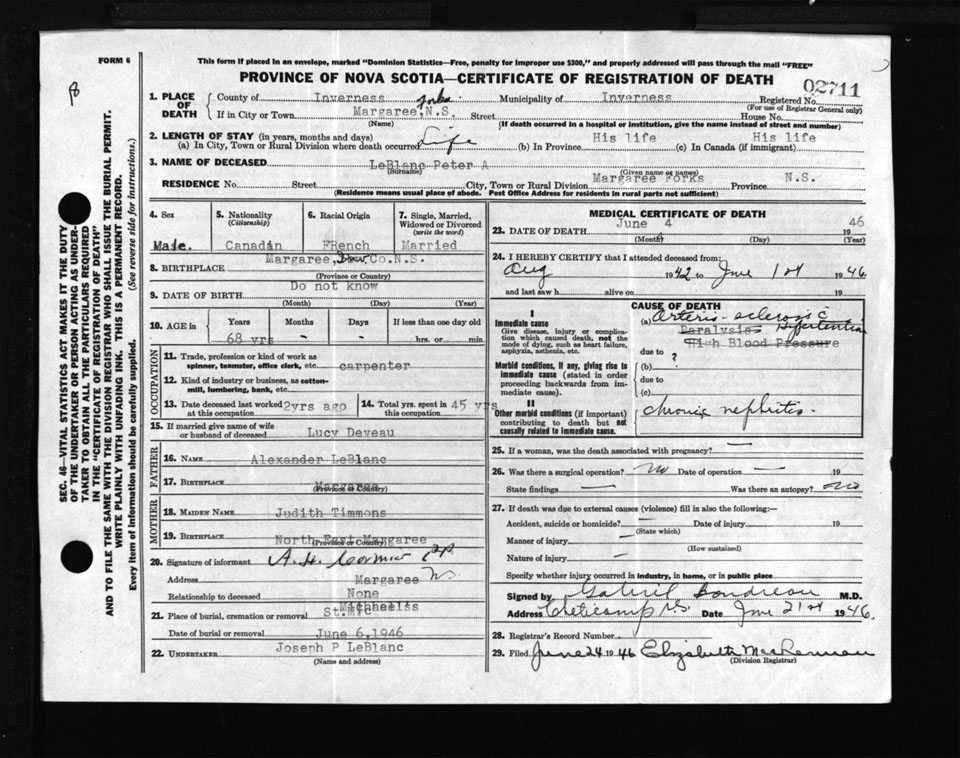 FORM 6
This form if placed in an envelope, marked "Dominion Statistics—Free, penalty for improper use $300," and properly addressed will pass through the mail "FREE"
PROVINCE OF NOVA SCOTIA—CERTIFICATE OF REGISTRATION OF DEATH
02711
8
SEC. 46—VITAL STATISTICS ACT MAKES IT THE DUTY
OF THE UNDERTAKER OR PERSON ACTING AS UNDER-
TAKER TO OBTAIN ALL THE PARTICULARS REQUIRED
IN THE "CERTIFICATE OF REGISTRATION OF DEATH"
AND TO FILE THE SAME WITH THE DIVISION REGISTRAR WHO SHALL ISSUE THE BURIAL PERMIT.
WRITE PLAINLY WITH UNFADING INK. THIS IS A PERMANENT RECORD.
Every item of information should be carefully supplied. (See reverse side for instructions.)
1. PLACE OF DEATH
County of Inverness Municipality of Inverness Registered No.
(For use of Registrar General only)
If in City or Town Margaree Forks, N.S. Street House No.
(Name) (If death occurred in a hospital or institution, give the name instead of street and number)
2. LENGTH OF STAY (in years, months and days)
(a) In City, Town or Rural Division where death occurred Life (b) In Province His life (c) In Canada (if immigrant) His life
3. NAME OF DECEASED LeBlanc Peter A
(Surname) (Given name or names)
RESIDENCE No. Street City, Town or Rural Division Margaree Forks Province N.S.
(Residence means usual place of abode. Post Office Address for residents in rural parts not sufficient)
4. Sex
Male.
5. Nationality
(Citizenship)
Canadian
6. Racial Origin
FRench
7. Single, Married, Widowed or Divorced
(write the word)
Married
8. BIRTHPLACE Margaree, Inv Co.N.S.
(Province or Country)
9. DATE OF BIRTH Do not know
(Month) (Day) (Year)
10. AGE in
Years Months Days If less than one day old
68 yrs - - hrs. or min.
OCCUPATION
11. Trade, profession or kind of work as spinner, teamster, office clerk, etc. carpenter
12. Kind of industry or business, as cotton-mill, lumbering, bank, etc.
13. Date deceased last worked at this occupation 2yrs ago
14. Total yrs. spent in this occupation 45 yrs
15. If married give name of wife or husband of deceased Lucy Deveau
FATHER
16. NAME Alexander LeBlanc
17. BIRTHPLACE Margaree
(Province or Country)
MOTHER
18. MAIDEN NAME Judith Timmons
19. BIRTHPLACE North East Margaree
(Province or Country)
20. Signature of informant A. H. Cormier P.P.
Address Margaree NS.
Relationship to deceased None
21. Place of burial, cremation or removal St. Micheells
Date of burial or removal June 6, 1946
22. UNDERTAKER Joseph P LeBlanc
(Name and address)
MEDICAL CERTIFICATE OF DEATH
23. DATE OF DEATH June 4 1946
(Month) (Day) (Year)
24. I HEREBY CERTIFY that I attended deceased from:
Aug 1942 to June 1st 1946
and last saw h alive on 19
CAUSE OF DEATH
I
Immediate cause
Give disease, injury or complication which caused death, not the mode of dying, such as heart failure, asphyxia, asthenia, etc.
Morbid conditions, if any, giving rise to immediate cause (stated in order proceeding backwards from immediate cause).
II
Other morbid conditions (if important) contributing to death but not causally related to immediate cause.
(a) Arterio-sclerosis
Paralysis Hypertension
High Blood Pressure
due to ?
(b)
due to
(c)
chronic nephritis.
25. If a woman, was the death associated with pregnancy? —
26. Was there a surgical operation? No Date of operation — 19
State findings — Was there an autopsy? No
27. If death was due to external causes (violence) fill in also the following:—
Accident, suicide or homicide? — Date of injury 19
(State which)
Manner of injury —
(How sustained)
Nature of injury —
Specify whether injury occurred in industry, in home, or in public place
Signed by Gabriel Boudreau M.D.
Address Cheticamp N.S. Date June 21st 1946.
28. Registrar's Record Number
29. Filed June 24 1946 Elizabeth MacLennan
(Division Registrar)